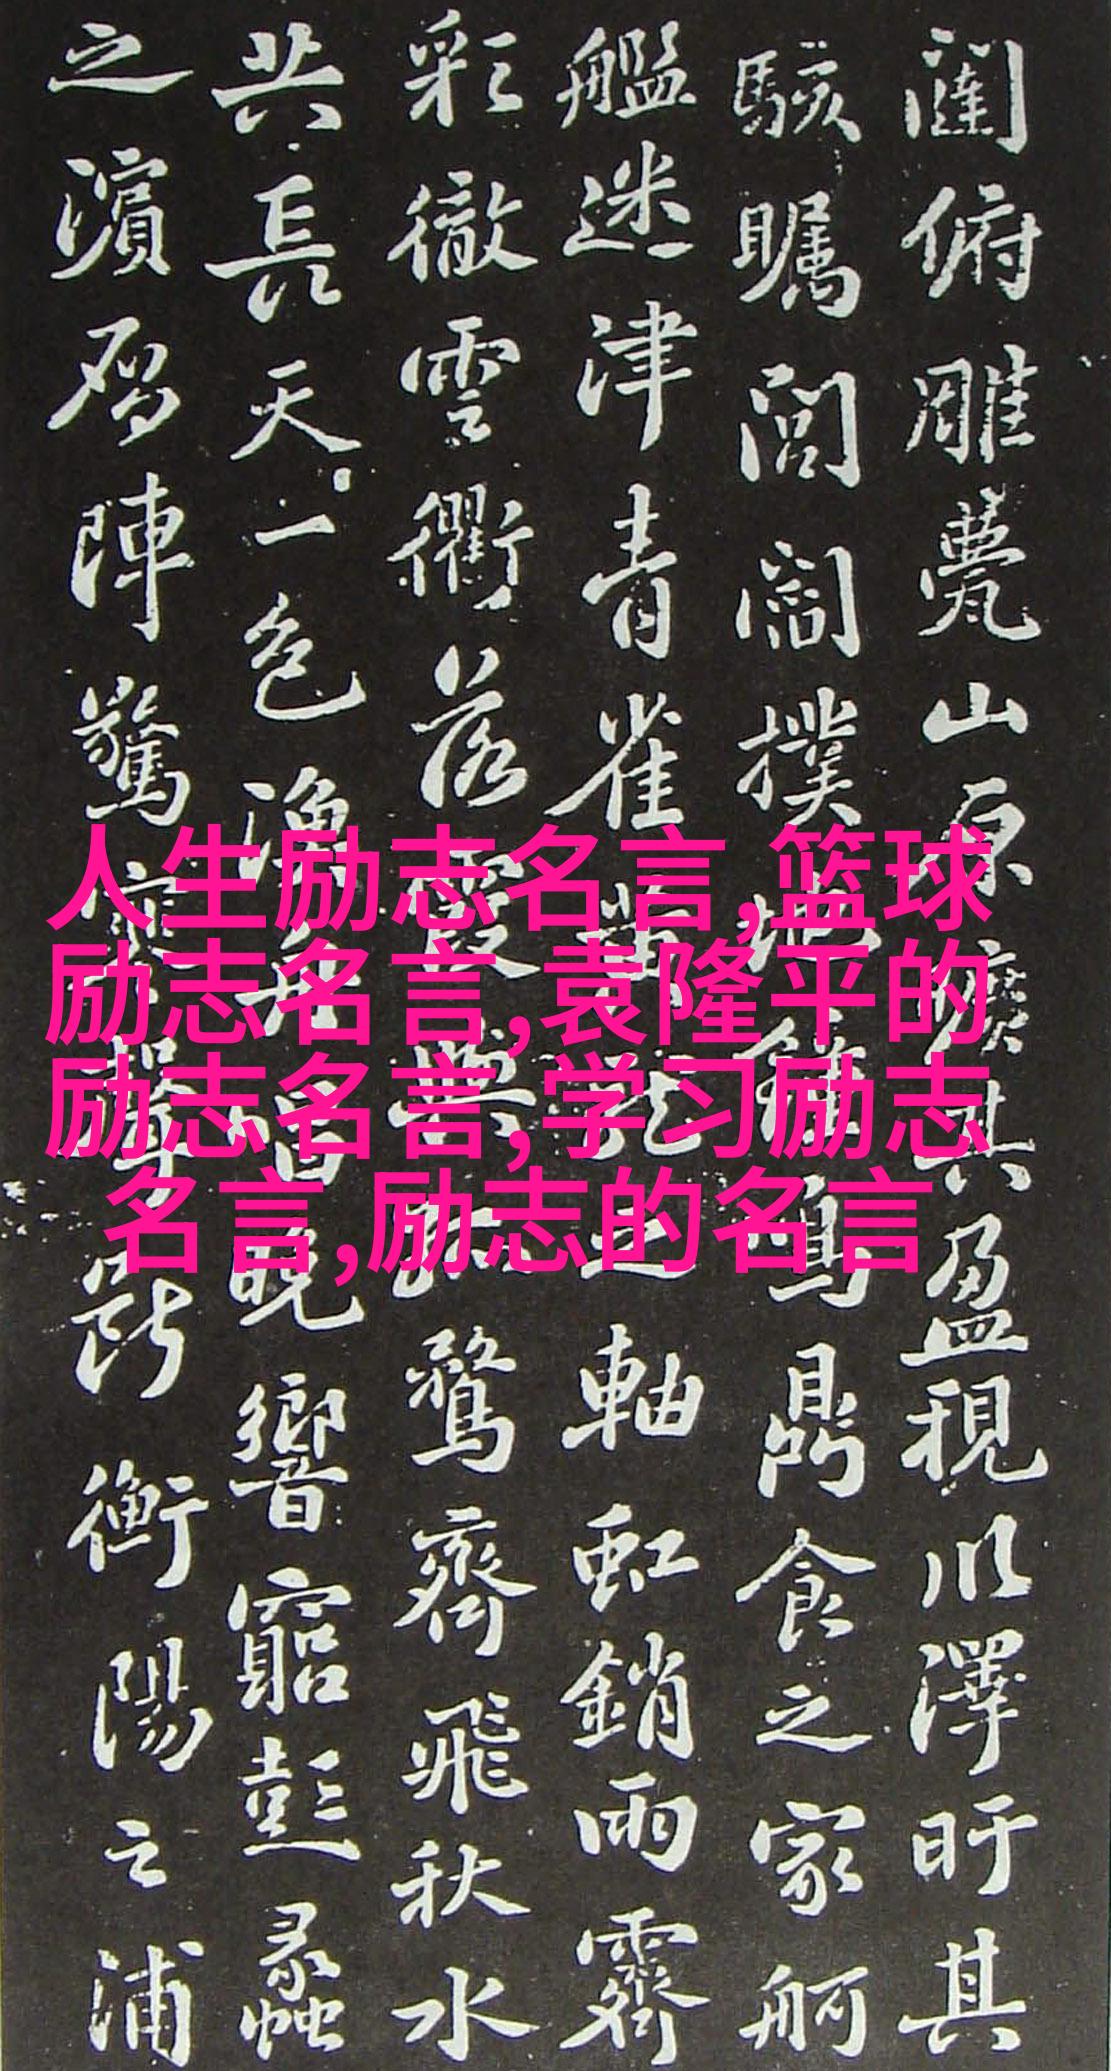 闥俯雕甍山原曠其盈視川澤盱其
駭矚閭閻撲地鍾鳴鼎食之家舸
艦迷津青雀黃龍之軸虹銷雨霽
彩徹雲衢落霞與孤鶩齊飛秋水
共長天一色漁舟唱晚響窮彭蠡
之濱雁陣驚寒聲斷衡陽之浦
人生励志名言,篮球
励志名言,袁隆平的
励志名言,学习励志
名言,励志的名言